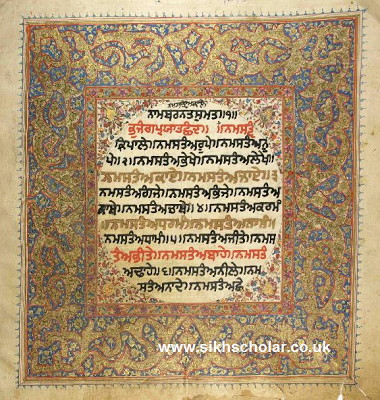 ਨਮਸਤੰਅਕਾਲੇ
ਨਾਮਬਰਨਤਸੁਮਤ॥੧॥
ਭੁਜੰਗਪ੍ਰਯਾਤਛੰਦ॥ ॥ਨਮਸਤੰ
ਕ੍ਰਿਪਾਲੇ॥ਨਮਸਤੰਅਰੂਪੇ॥ਨਮਸਤੰਅਨੂ
ਪੇ॥੨॥ਨਮਸਤੰਅਭੇਖੇ॥ਨਮਸਤੰਅਲੇਖੇ॥
ਨਮਸਤੰਅਕਾਏ॥ਨਮਸਤੰਅਜਾਏ॥੩॥
ਨਮਸਤੰਅਗੰਜੇ॥ਨਮਸਤੰਅਭੰਜੇ॥ਨਮਸਤੰਅ
ਨਾਮੇ॥ਨਮਸਤੰਅਠਾਮੇ॥੪॥ਨਮਸਤੰਅਕਰਮੰ
॥ਨਮਸਤੰਅਧਰਮੰ॥ਨਮਸਤੰਅਨਾਮੰ॥
ਨਮਸਤੰਅਧਾਮੰ॥੫॥ਨਮਸਤੰਅਜੀਤੇ॥ਨਮਸ
ਤੰਅਭੀਤੇ॥ਨਮਸਤੰਅਬਾਹੇ॥ਨਮਸਤੰ
ਅਢਾਹੇ॥੬॥ਨਮਸਤੰਅਨੀਲੇ॥ਨਮ
ਸਤੰਅਨਾਦੇ॥ਨਮਸਤੰਅਛੇ
www.sikhscholar.co.uk